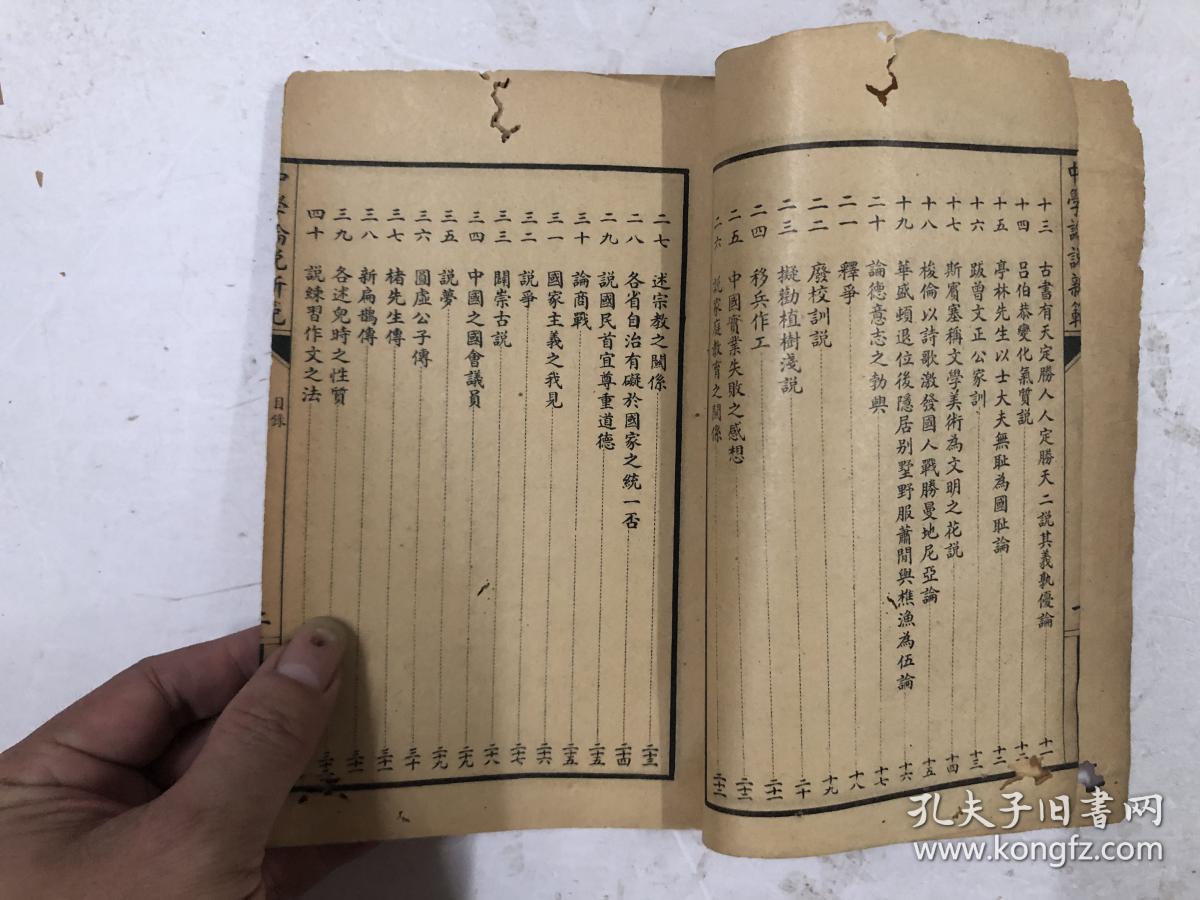 中學論說新範
一
十三 古書有天定勝人人定勝天二說其義孰優論 十一
十四 呂伯恭變化氣質說
十五 亭林先生以士大夫無恥為國恥論 十二
十六 跋曾文正公家訓 十三
十七 斯賓塞稱文學美術為文明之花說 十四
十八 梭倫以詩歌激發國人戰勝曼地尼亞論 十五
十九 華盛頓退位後隱居别墅野服蕭閒與樵漁為伍論 十六
二十 論德意志之勃興 十七
二一 釋爭 十八
二二 廢校訓説 十九
二三 擬勸植樹淺説 二十
二四 移兵作工 二十一
二五 中國實業失敗之感想 二十二
二六 説家庭教育之關係 二十二
二七 述宗教之關係 二十三
二八 各省自治有礙於國家之統一否 二十四
二九 説國民首宜尊重道德 二十五
三十 論商戰 二十五
三一 國家主義之我見 二十六
三二 説爭 二十七
三三 闢崇古説 二十八
三四 中國之國會議員 二十九
三五 説夢 二十九
三六 圓虛公子傳 三十
三七 楮先生傳 三十一
三八 新扁鵲傳 三十一
三九 各述兒時之性質
四十 説練習作文之法
中學論說新範
目錄
二
孔夫子旧书网
www.kongfz.com